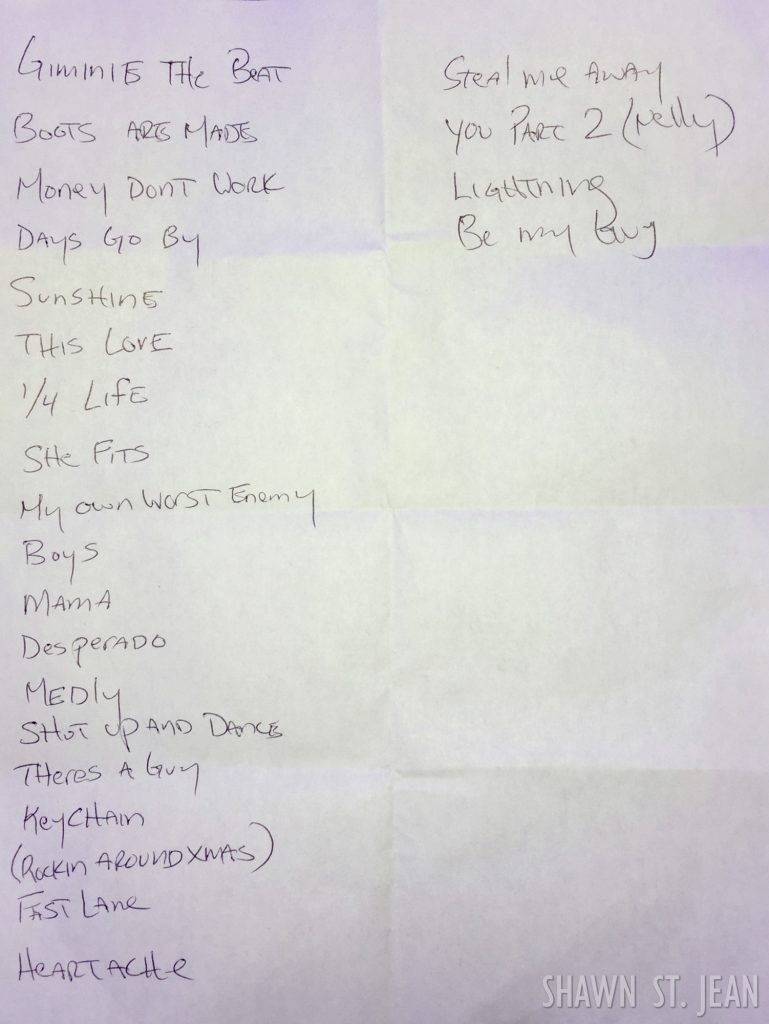 Giminie The Beat
Boots Are Made
Money Dont Work
Days Go By
Sunshine
This Love
1/4 Life
She Fits
My own Worst Enemy
Boys
Mama
Desperado
Medly
Shut up and Dance
Theres A Guy
Keychain
(Rockin Around Xmas)
Fast Lane
Heartache
Steal me Away
You Part 2 (Nelly)
Lightning
Be my Guy
SHAWN ST. JEAN